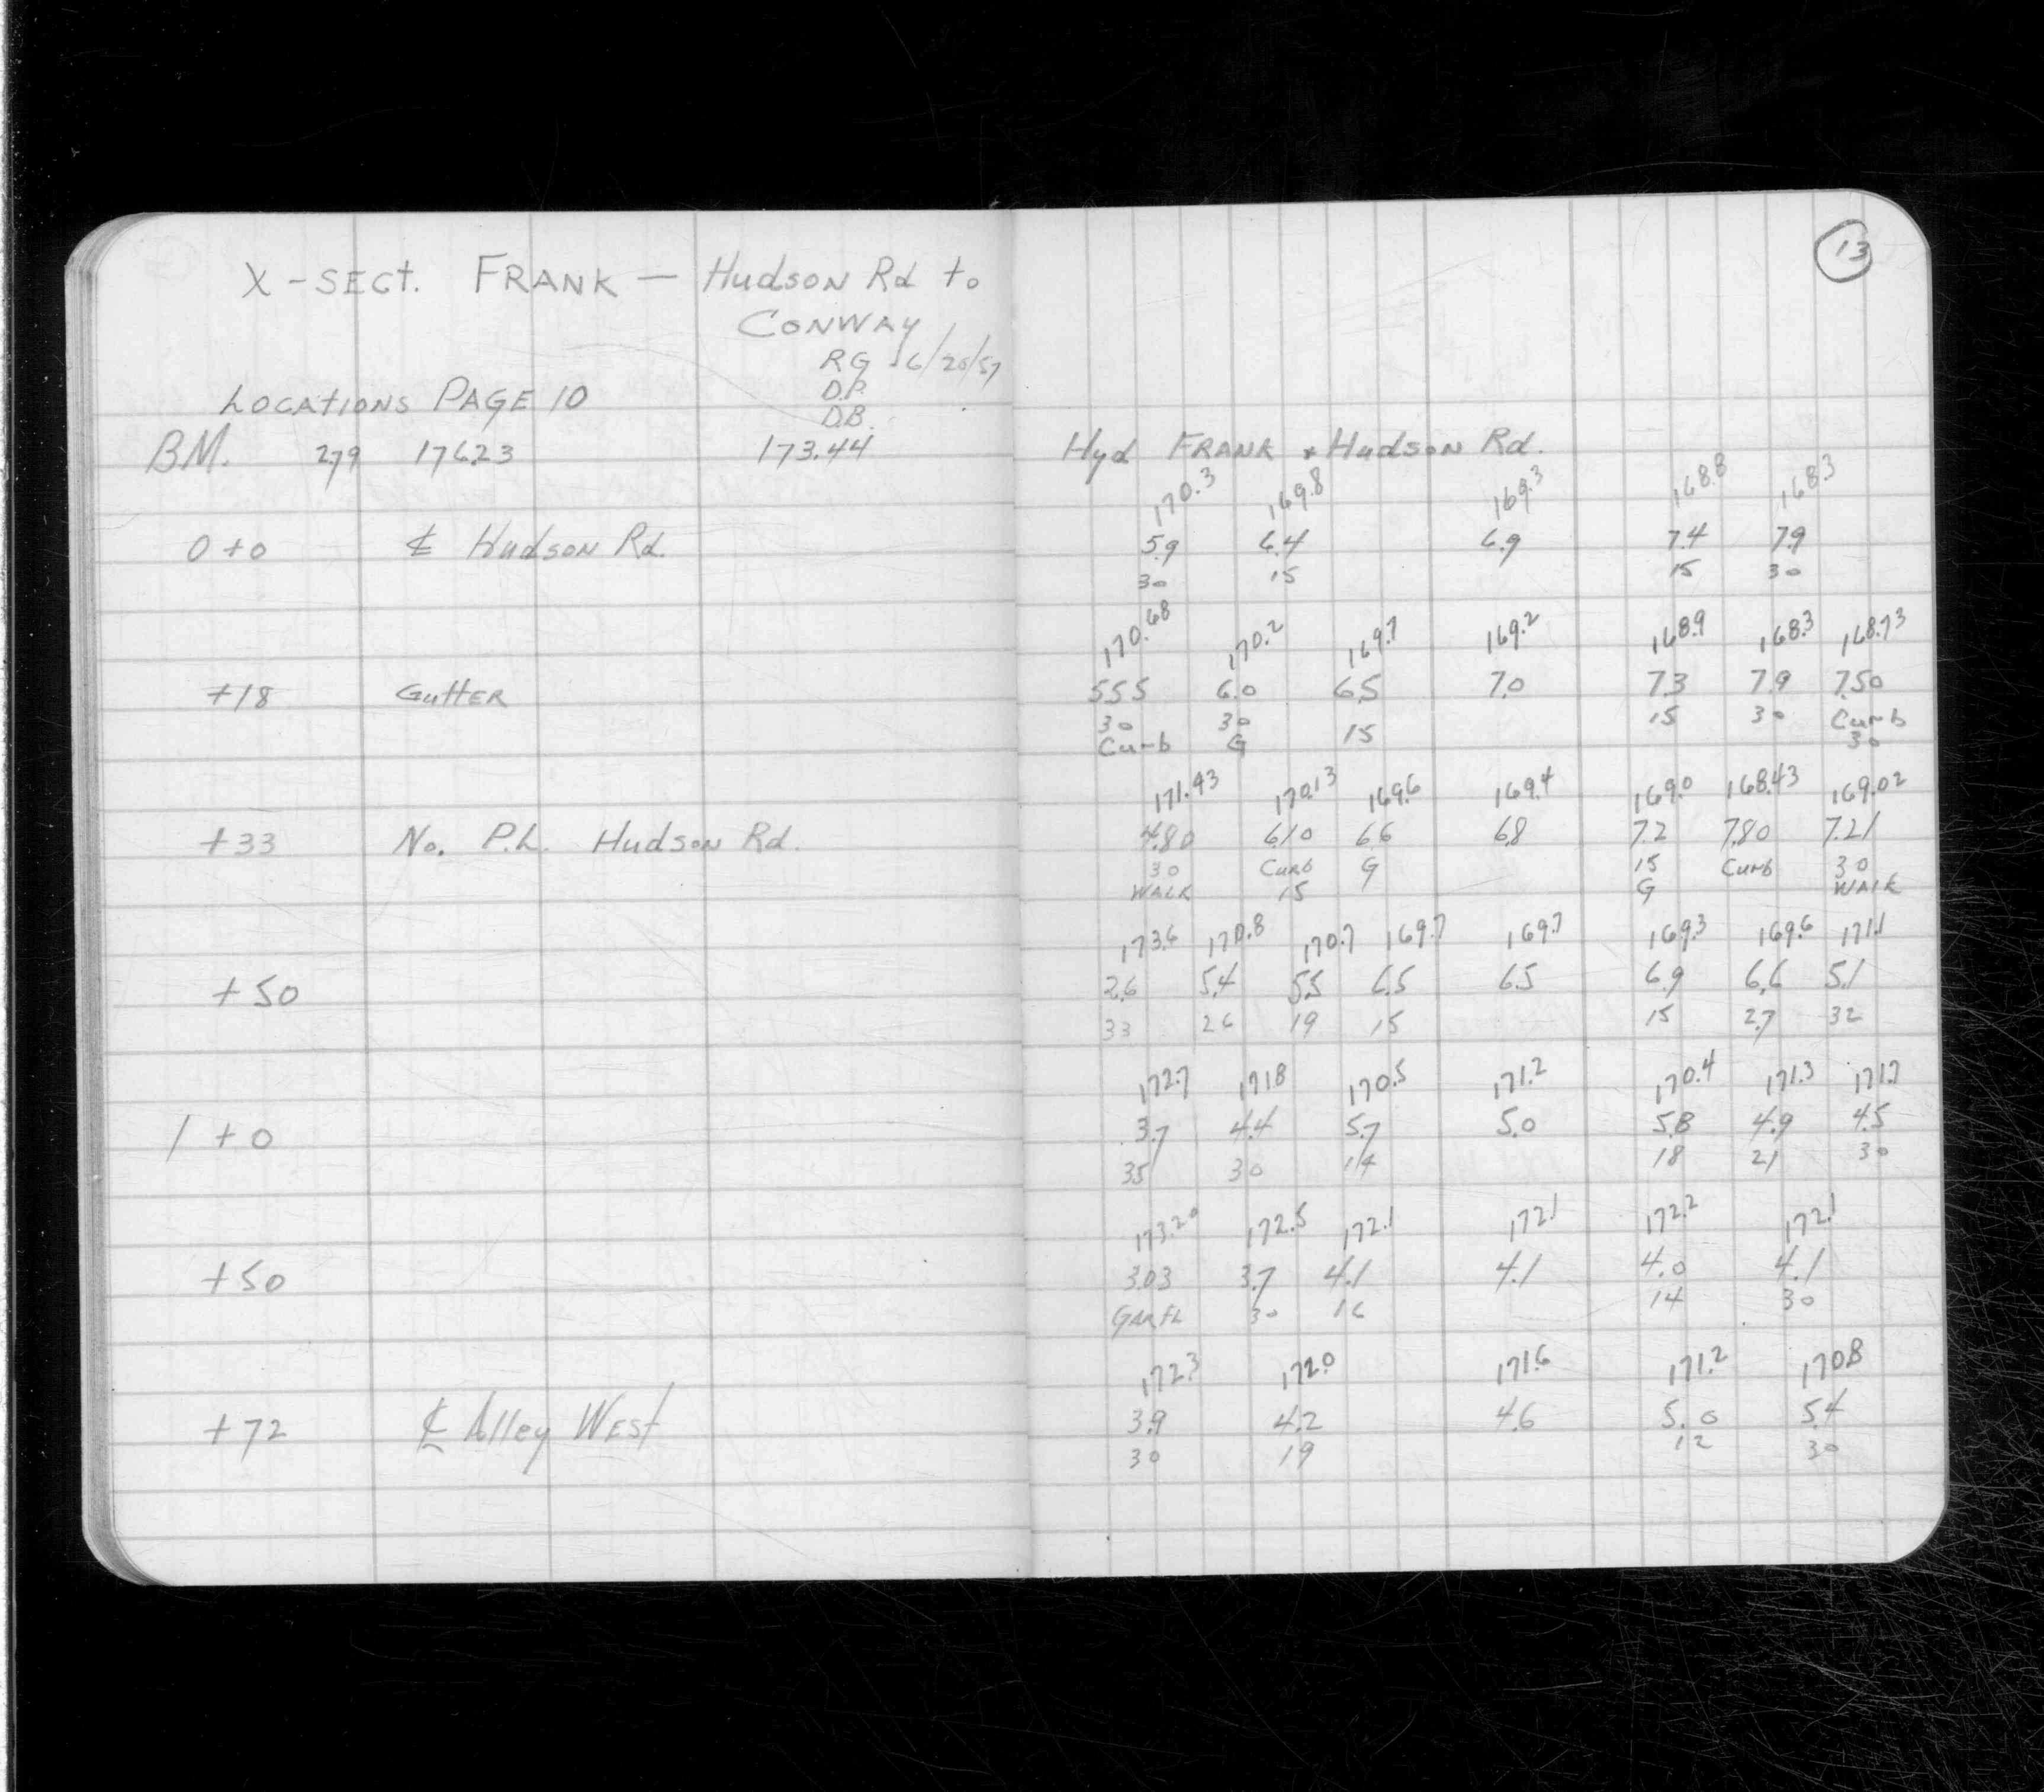 X-SECT. FRANK — Hudson Rd to
CONWAY
RG 6/20/57
D.P.
LOCATIONS PAGE 10
D.B.
BM. 2.79 176.23 173.44
0+0 ℄ Hudson Rd.
+18 GUTTER
+33 No. P.L. Hudson Rd.
+50
1+0
+50
+72 ℄ Alley WEST
13
Hyd FRANK & Hudson Rd.
170.3 169.8 169.3 168.8 168.3
5.9 6.4 6.9 7.4 7.9
30 15 15 30
170.68 170.2 169.7 169.2 168.9 168.3 168.73
5.55 6.0 6.5 7.0 7.3 7.9 7.50
30 30 15 15 30 Curb
Curb G 30
171.43 170.13 169.6 169.4 169.0 168.43 169.02
4.80 6.10 6.6 6.8 7.2 7.80 7.21
30 Curb G 15 Curb 30
WALK 15 G WALK
173.6 170.8 170.7 169.7 169.7 169.3 169.6 171.1
2.6 5.4 5.5 6.5 6.5 6.9 6.6 5.1
33 26 19 15 15 27 32
172.7 171.8 170.5 171.2 170.4 171.3 171.7
3.7 4.4 5.7 5.0 5.8 4.9 4.5
35 30 14 18 21 30
173.20 172.5 172.1 172.1 172.2 172.1
3.03 3.7 4.1 4.1 4.0 4.1
GAR FL 30 16 14 30
172.3 172.0 171.6 171.2 170.8
3.9 4.2 4.6 5.0 5.4
30 19 12 30